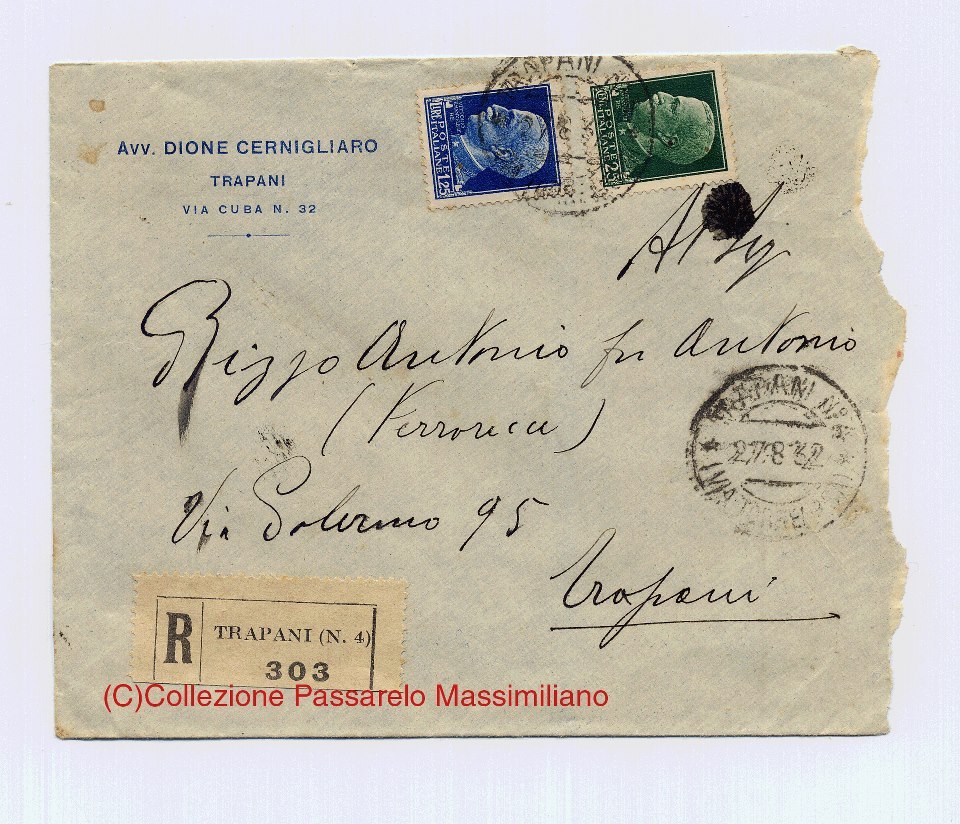 TRAPANI N.
LIRE 1,25
POSTE
ITALIANE
POSTE
ITALIANE
Avv. DIONE CERNIGLIARO
TRAPANI
VIA CUBA N. 32
Al Sig
Rizzo Antonio fu Antonio
Via Salerno 95
Trapani
TRAPANI N.4
27.8.32
R
TRAPANI (N. 4)
303
(C)Collezione Passarelo Massimiliano